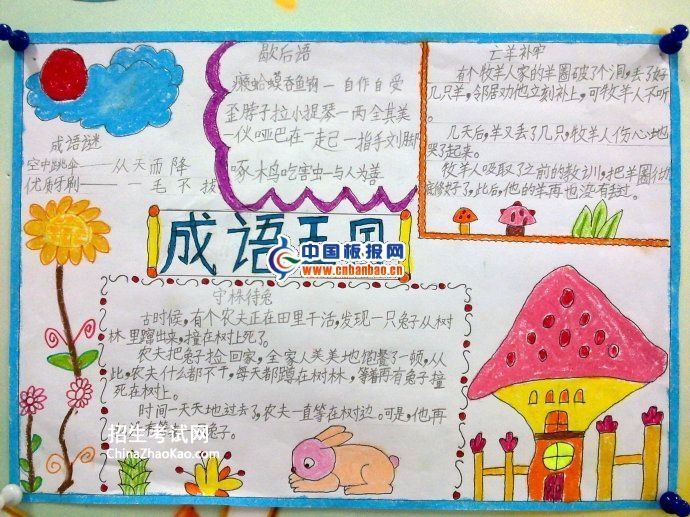 歇后语
癞蛤蟆吞鱼钩—自作自受
歪脖子拉小提琴—两全其美
一伙哑巴在一起—指手刘脚
啄木鸟吃害虫—与人为善
亡羊补牢
有个牧羊人家的羊圈破了个洞,丢了好
几只羊,邻居劝他立刻补上,可牧羊人不听
。
几天后,羊又丢了几只,牧羊人伤心地
哭了起来。
牧羊人吸取了之前的教训,把羊圈
好了,此后,他的羊再也没有丢过。
成语谜
空中跳伞——从天而降
优质牙刷——一毛不拔
成语王国
中国板报网
www.cnbanbao.cn
守株待兔
古时候,有个农夫正在田里干活,发现一只兔子从树
林里蹿出来,撞在树上死了。
农夫把兔子捡回家,全家人美美地饱餐了一顿,从
此,农夫什么都不干,每天都蹲在树林,等着再有兔子撞
死在树上。
时间一天天地过去了,农夫一直等在树边。可是,他再
兔子。
招生考试网
ChinaZhaoKao.com